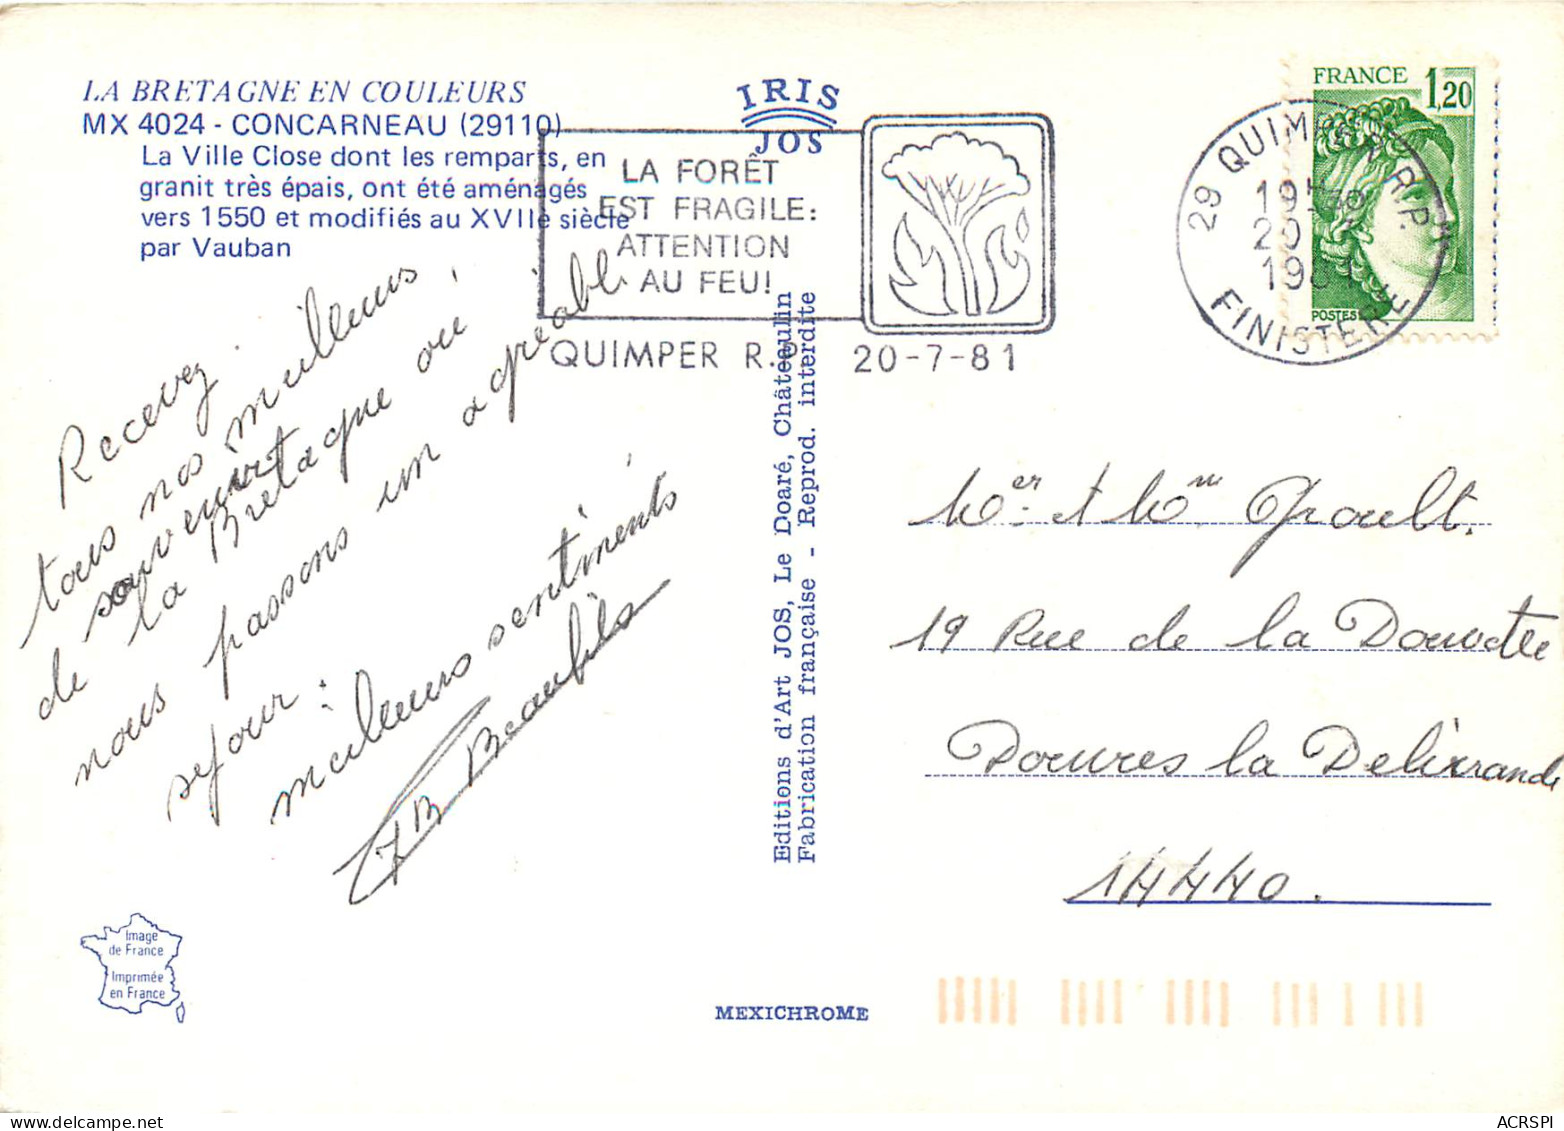 LA BRETAGNE EN COULEURS
MX 4024 - CONCARNEAU (29110)
La Ville Close dont les remparts, en
granit très épais, ont été aménagés
vers 1550 et modifiés au XVIIè siècle
par Vauban
IRIS
JOS
LA FORÊT
EST FRAGILE:
ATTENTION
AU FEU!
QUIMPER R.P. 20-7-81
29 QUIMPER R.P.
19H
20
1981
FINISTERE
FRANCE 1,20
POSTES
Recevez
tous nos meilleurs
souvenirs
de la Bretagne où
nous passons un agréabl
sejour:
meilleurs sentiments
Beaufils
Editions d'Art JOS, Le Doaré, Châteaulin
Fabrication française - Reprod. interdite
Mer et Mme Groult.
19 Rue de la
Douvres la Delivrande
14440.
Image
de France
Imprimée
en France
MEXICHROME
ACRSPI